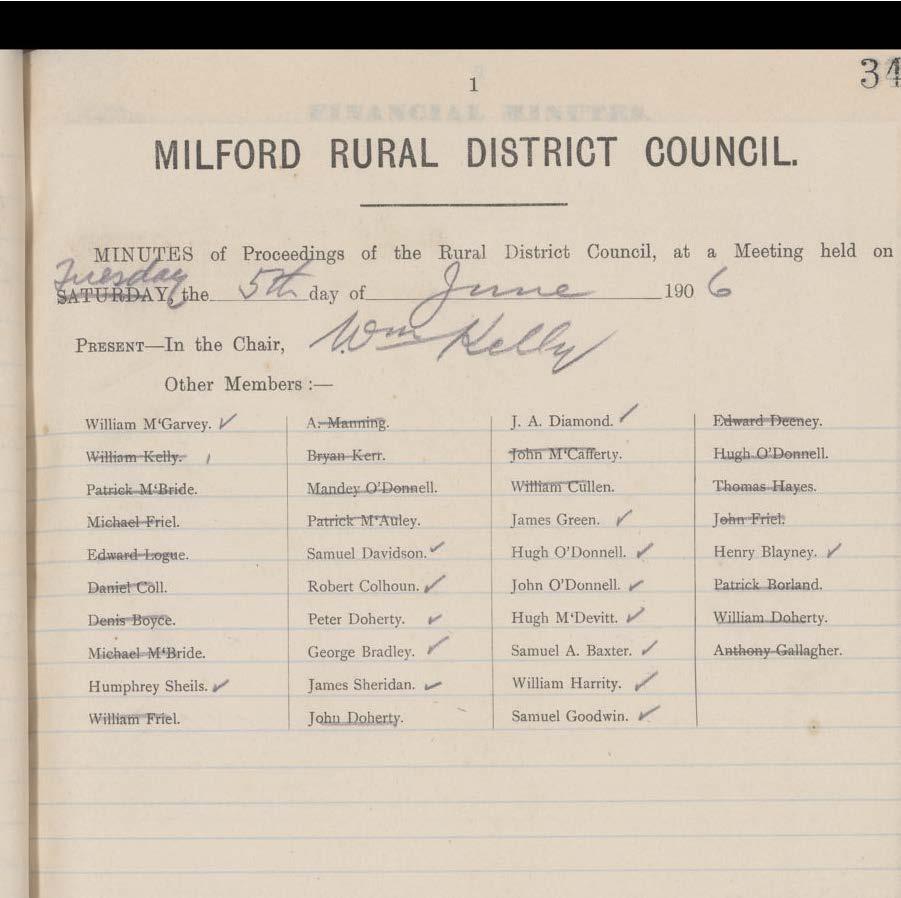 1
34
MILFORD RURAL DISTRICT COUNCIL.
MINUTES of Proceedings of the Rural District Council, at a Meeting held on
Tuesday
SATURDAY, the 5th day of June 1906
PRESENT—In the Chair, Wm Kelly
Other Members :—
William M‘Garvey. ✓
William Kelly.
Patrick M‘Bride.
Michael Friel.
Edward Logue.
Daniel Coll.
Denis Boyce.
Michael M‘Bride.
Humphrey Sheils. ✓
William Friel.
A. Manning.
Bryan Kerr.
Mandey O’Donnell.
Patrick M‘Auley.
Samuel Davidson. ✓
Robert Colhoun. ✓
Peter Doherty. ✓
George Bradley. ✓
James Sheridan. ✓
John Doherty.
J. A. Diamond. ✓
John M‘Cafferty.
William Cullen.
James Green. ✓
Hugh O’Donnell. ✓
John O’Donnell. ✓
Hugh M‘Devitt. ✓
Samuel A. Baxter. ✓
William Harrity. ✓
Samuel Goodwin. ✓
Edward Deeney.
Hugh O’Donnell.
Thomas Hayes.
John Friel.
Henry Blayney. ✓
Patrick Borland.
William Doherty.
Anthony Gallagher.